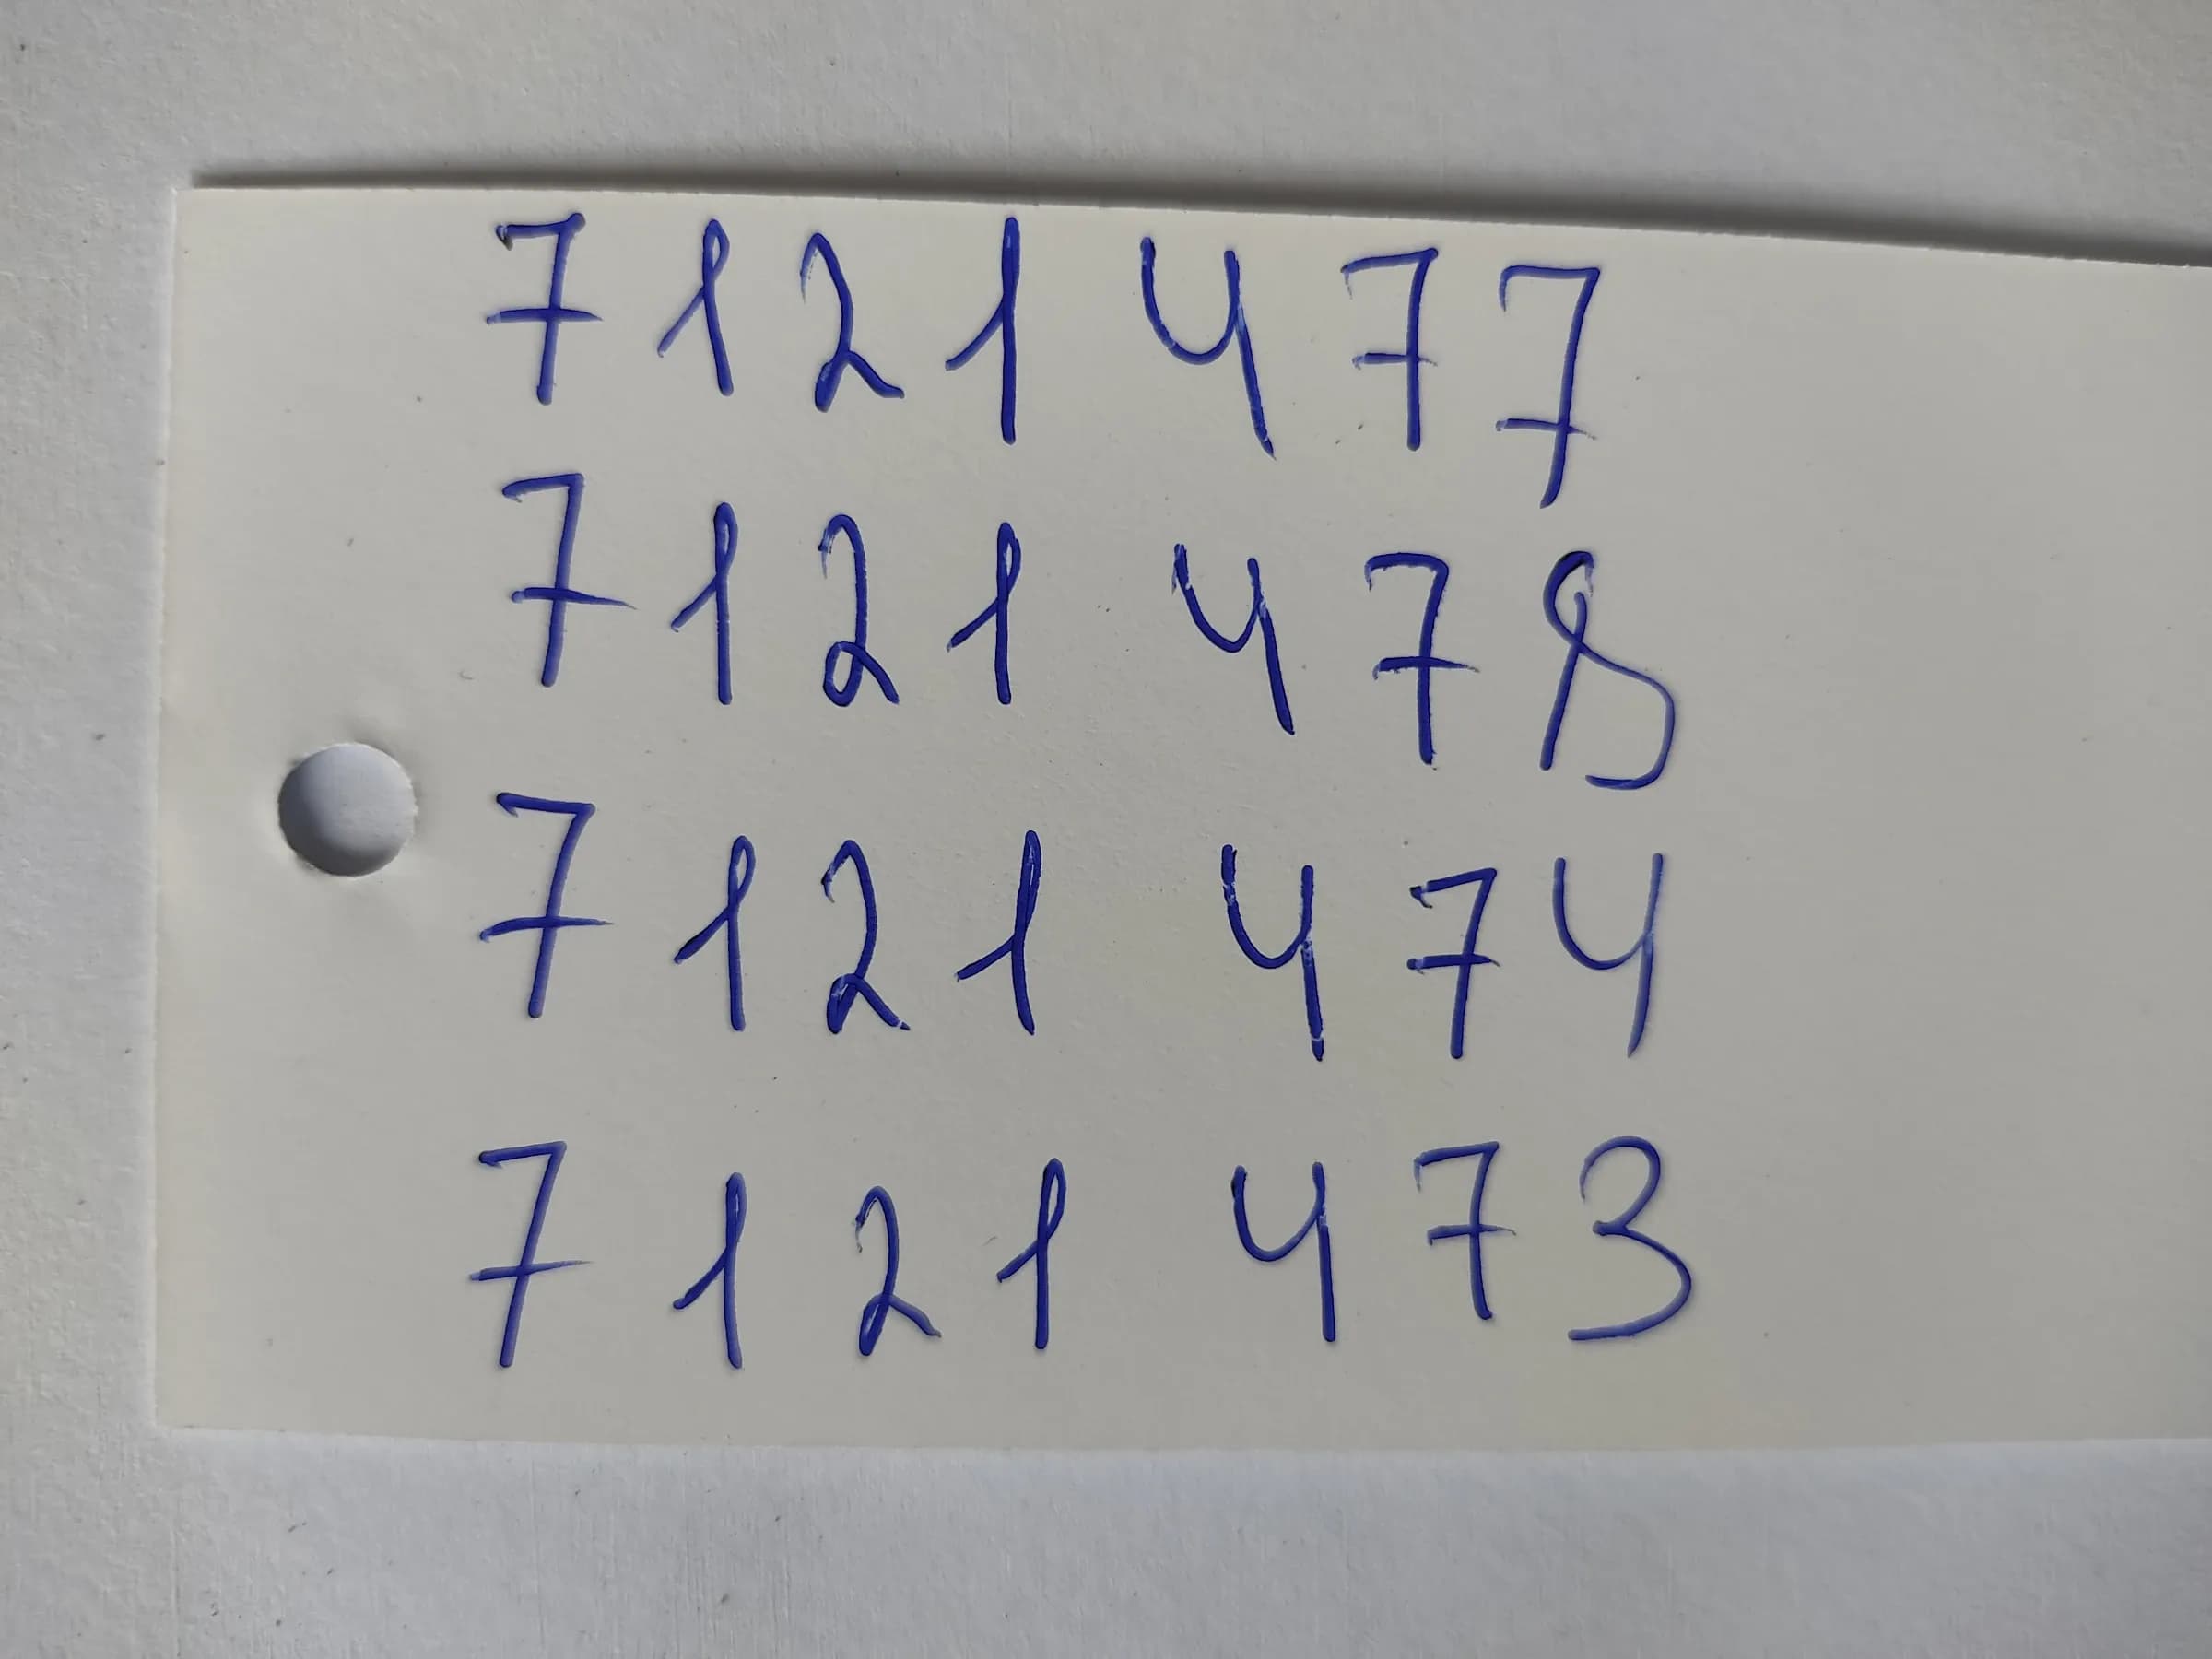 7121477
7121478
7121474
7121473